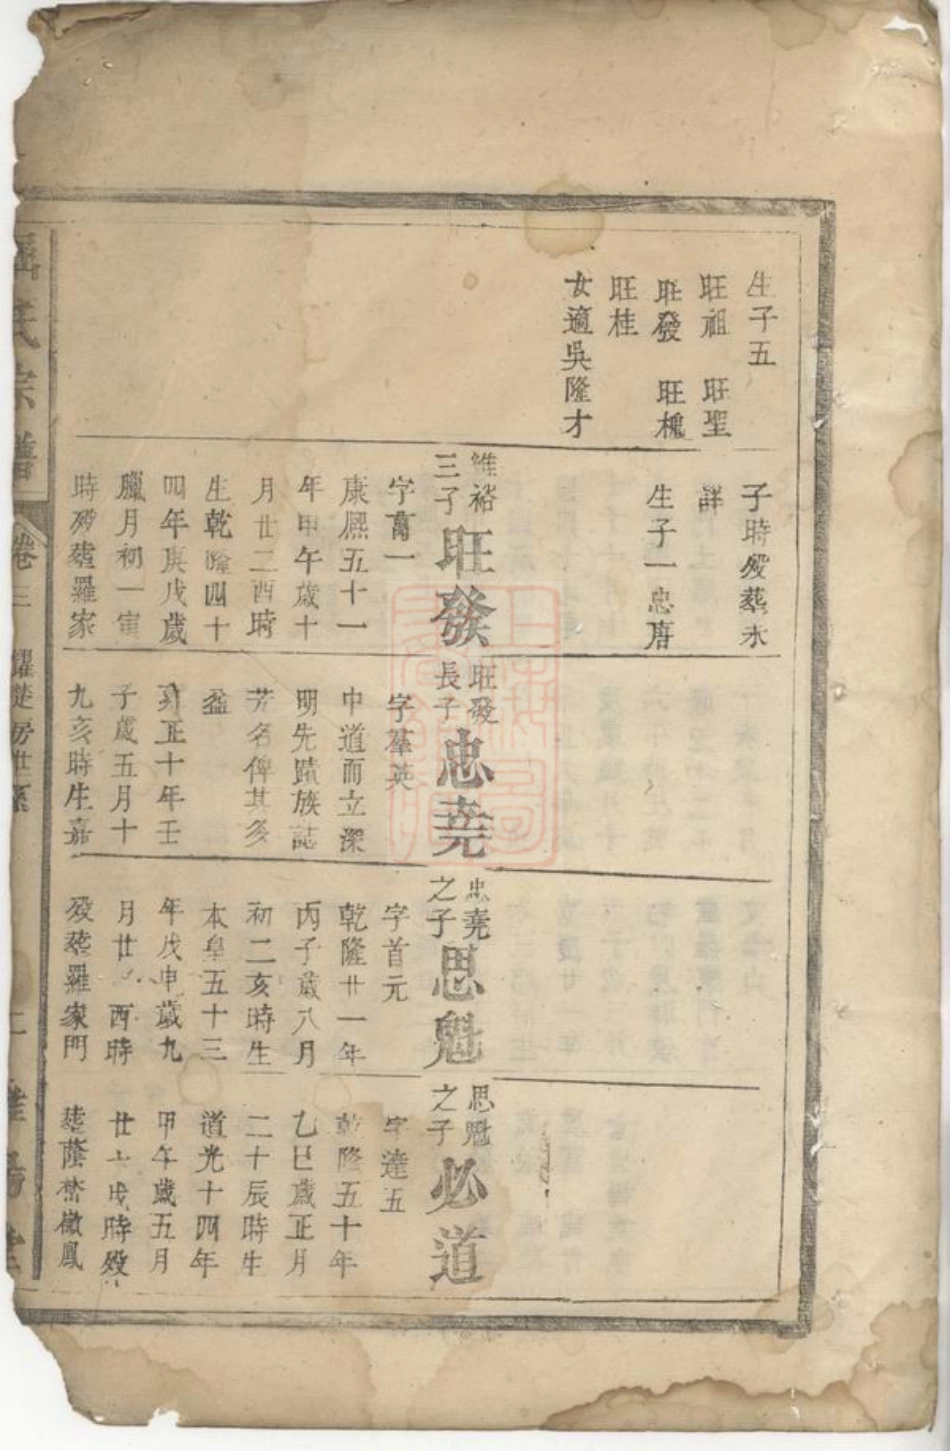 生子五
旺祖 旺聖
旺發 旺槐
旺桂
女適吳隆才
子時歿葬永
詳
生子一忠唐
維裕
三子
旺發
字萬一
康熙五十一
年甲午歲十
月廿二酉時
生乾隆四十
四年庚戌歲
臘月初一寅
時歿塟羅家
旺發
長子
忠堯
字羣英
中道而立深
明先蹟族誌
芳名俾其多
益
雍正十年壬
子歲五月十
九亥時生嘉
忠堯
之子
思魁
字首元
乾隆廿一年
丙子歲八月
初二亥時生
本皇五十三
年戊申歲九
月廿 酉時
歿塟羅家門
思魁
之子
必道
字達五
乾隆五十年
乙巳歲正月
二十辰時生
道光十四年
甲午歲五月
廿六戌時歿
塟蔭 嶽鳳
氏宗譜
卷三
耀楚房世系